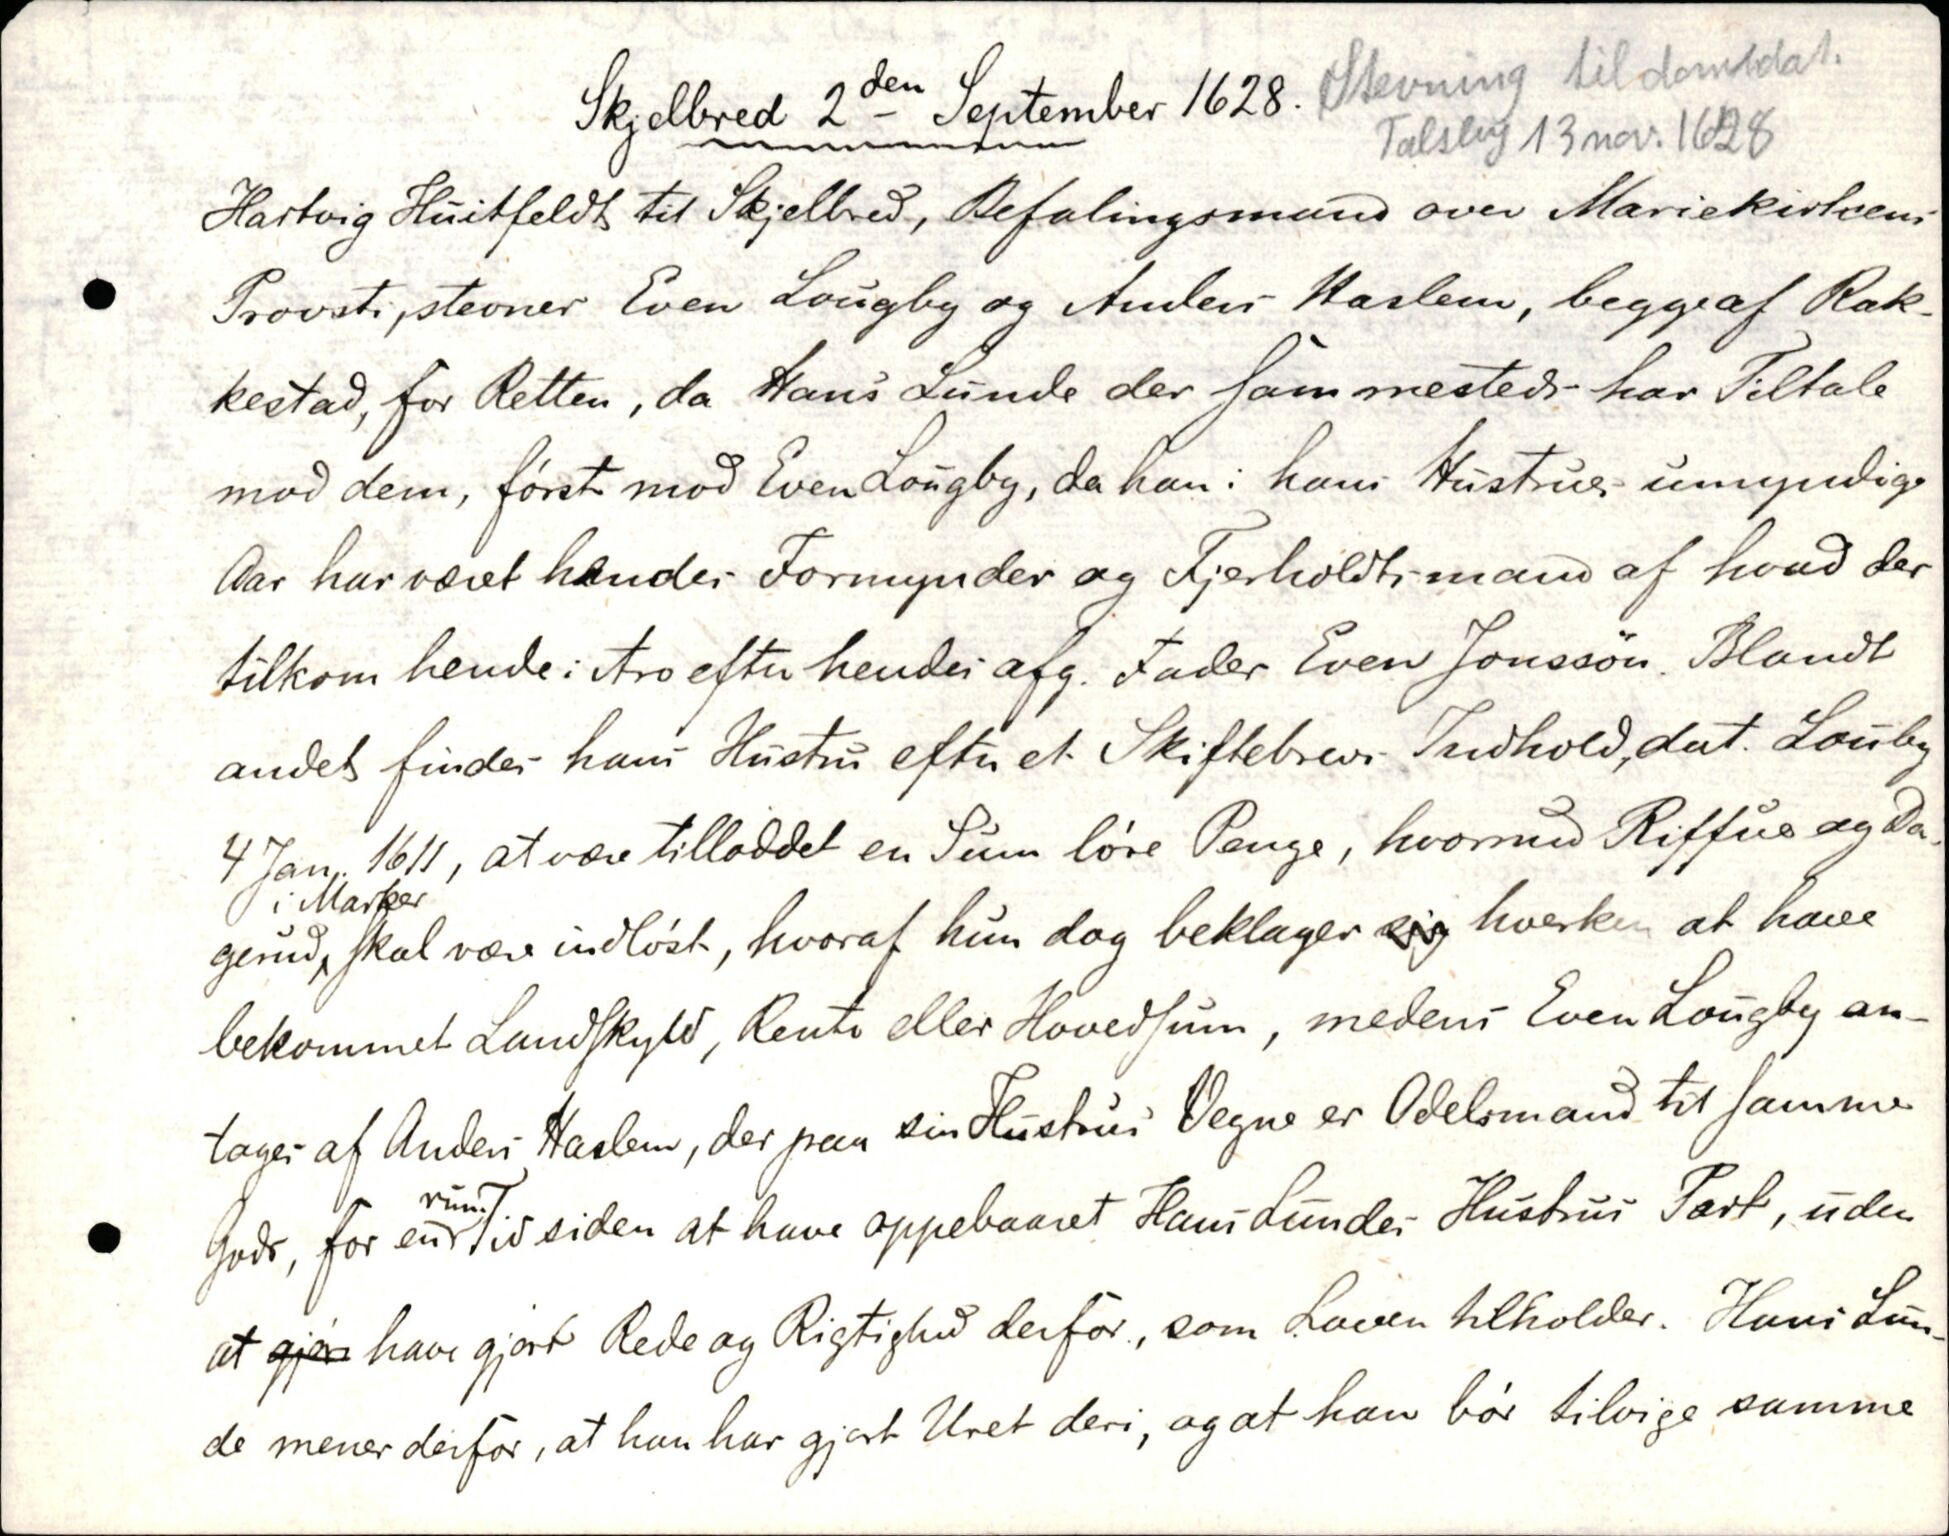 Skjelbred 2den September 1628.
Stevning til dom dat.
Talsby 13 nov. 1628
Hartvig Huitfeldt til Skjelbred, Befalingsmand over Mariekirkens
Provsti, stevner Even Lougby og Anders Haslem, begge af Rak-
kestad, for Retten, da Hans Lunde der sammesteds har Tiltale
mod dem, først mod Even Lougby, da han i hans Hustrues umyndige
Aar har været hendes Formynder og Fjerholdtsmand af hvad der
tilkom hende i Arv efter hendes afg. Fader Even Jonssøn. Blandt
andet findes hans Hustru efter et Skiftebrevs Indhold, dat. Louby
4 Jan. 1611, at være tilloddet en Sum løse Penge, hvormed Riffue og Da-
i Marker
gerud, skal være indløst, hvoraf hun dog beklager sig hverken at have
bekommet Landskyld, Rente eller Hovedsum, medens Even Lougby an-
tages af Anders Haslem, der paa sin Hustrus Vegne er Odelsmand til samme
rum
Gods, for en Tid siden at have oppebaaret Hans Lundes Hustrus Part, uden
at gjøre have gjort Rede og Rigtighed derfor, som Loven tilholder. Hans Lun-
de mener derfor, at han har gjort Uret deri, og at han bør tilvige samme